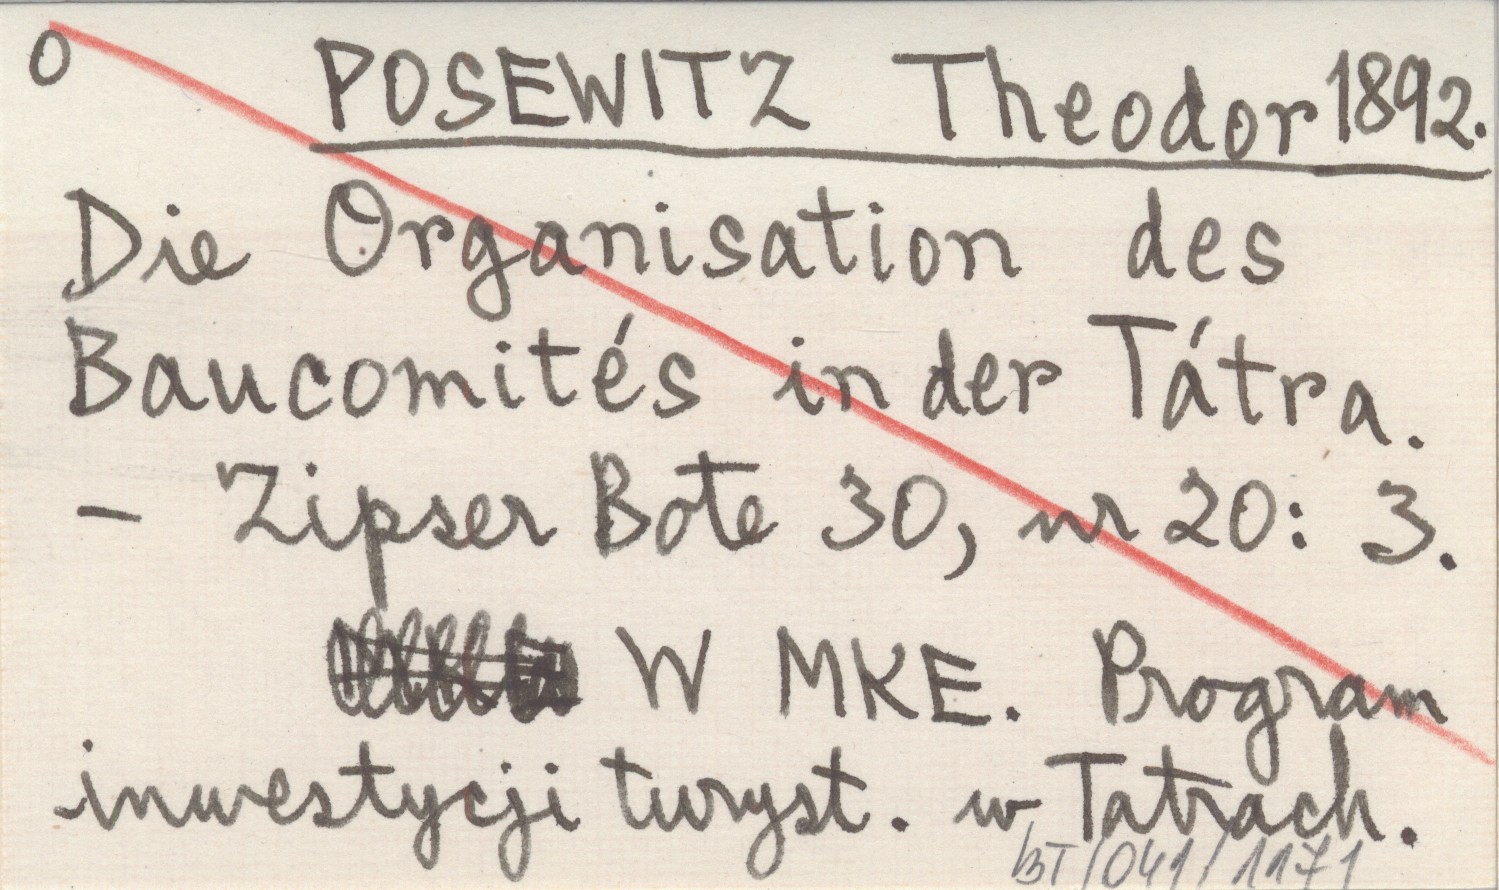 O POSEWITZ Theodor 1892.
Die Organisation des
Baucomités in der Tátra.
- Zipser Bote 30, nr 20: 3.
W MKE. Program
inwestycji turyst. w Tatrach.
BT/041/1171